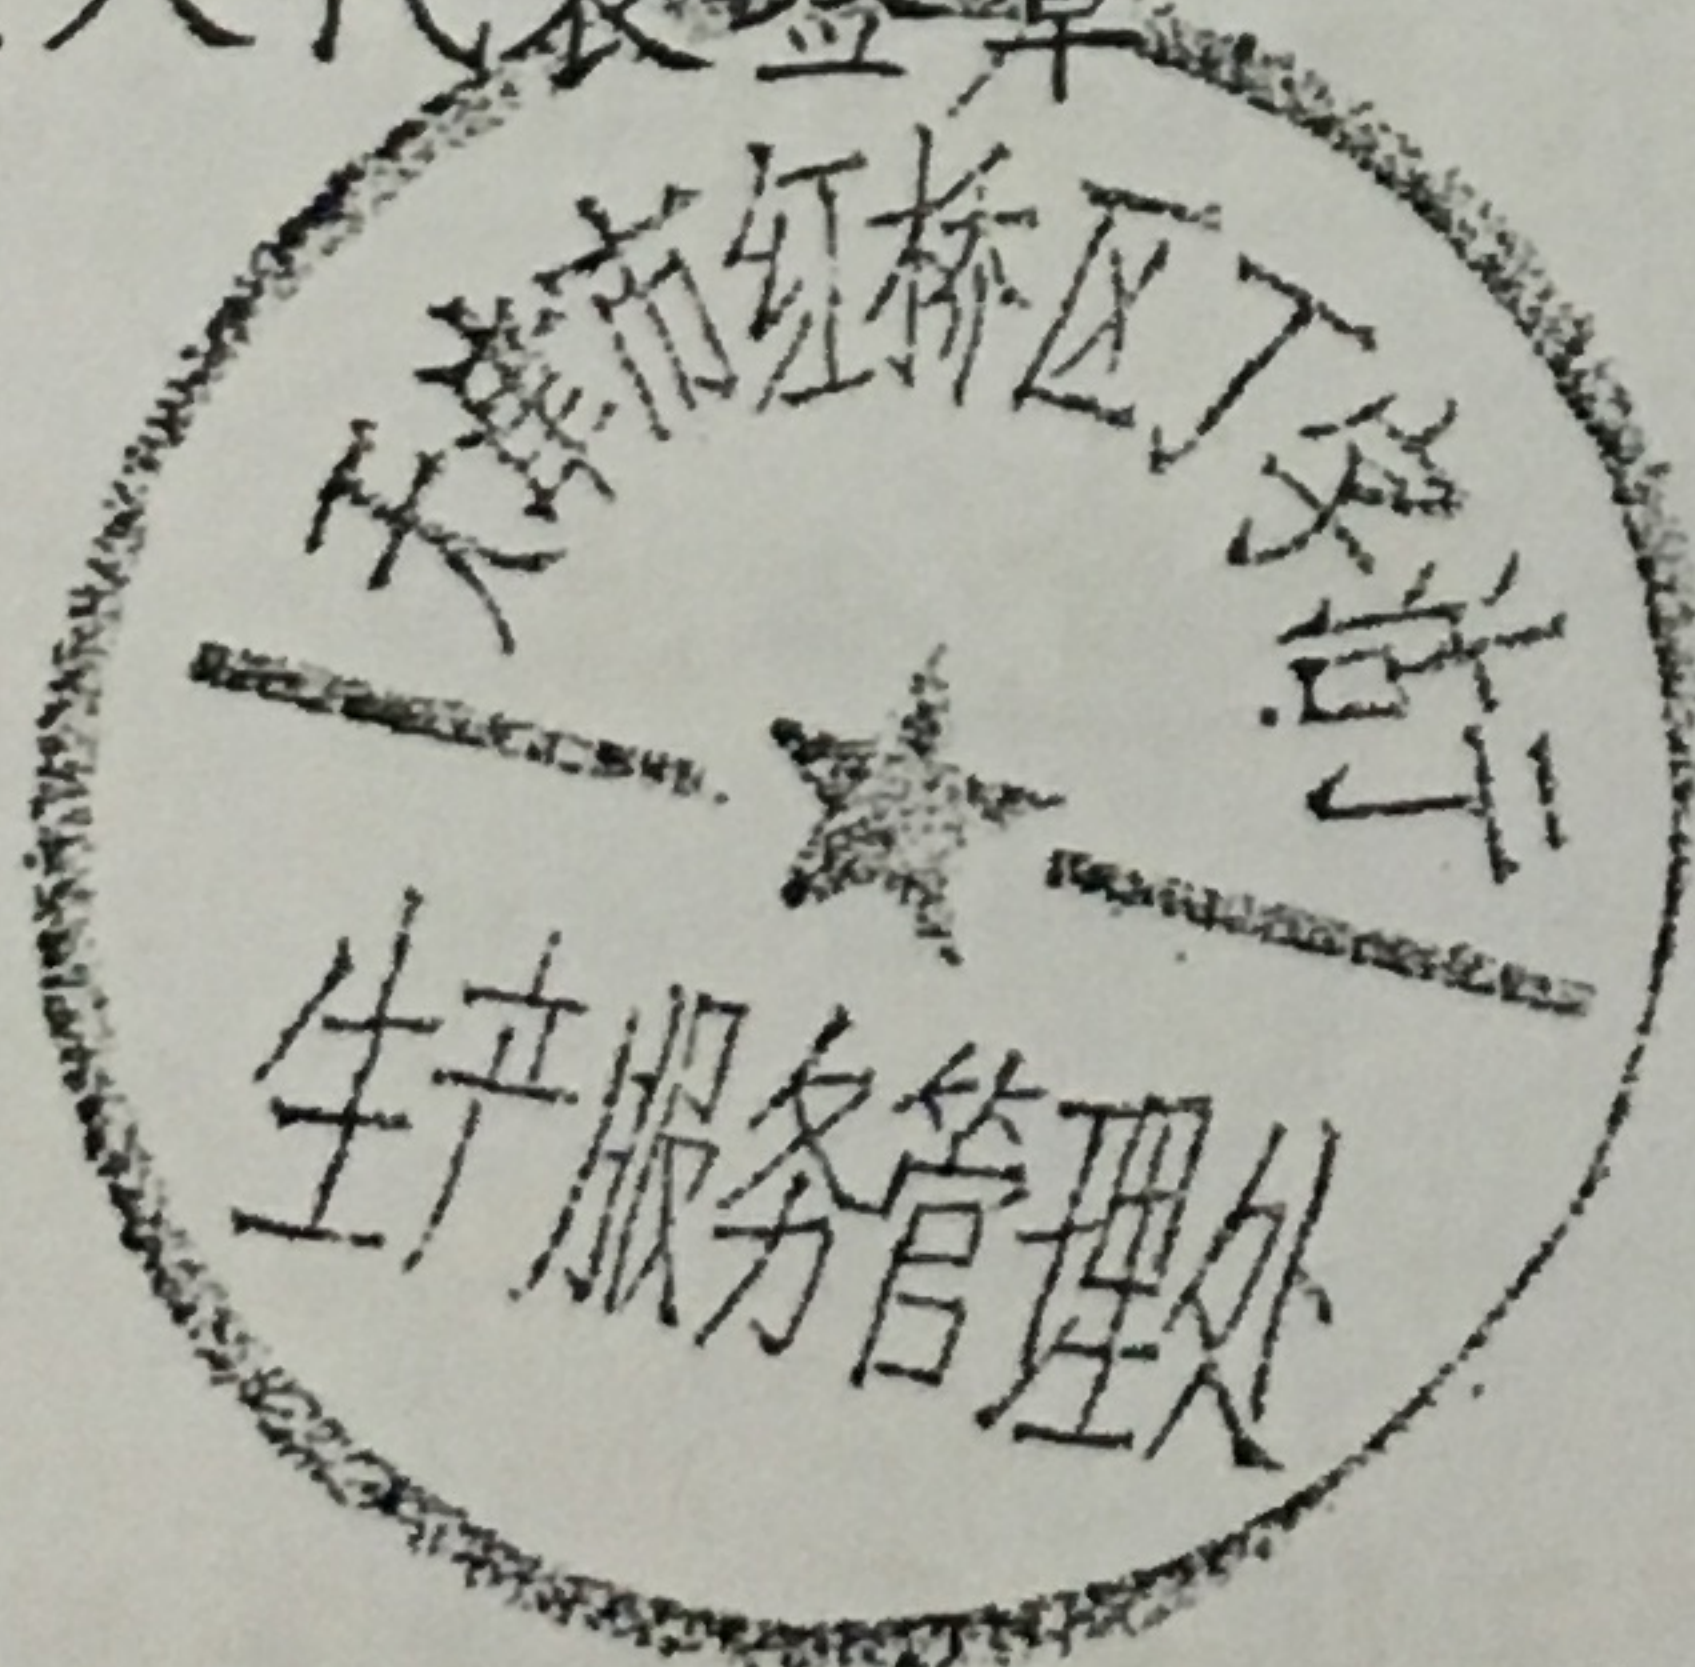 人代表盖章
天津市红桥区丁字沽亍
生产服务管理处